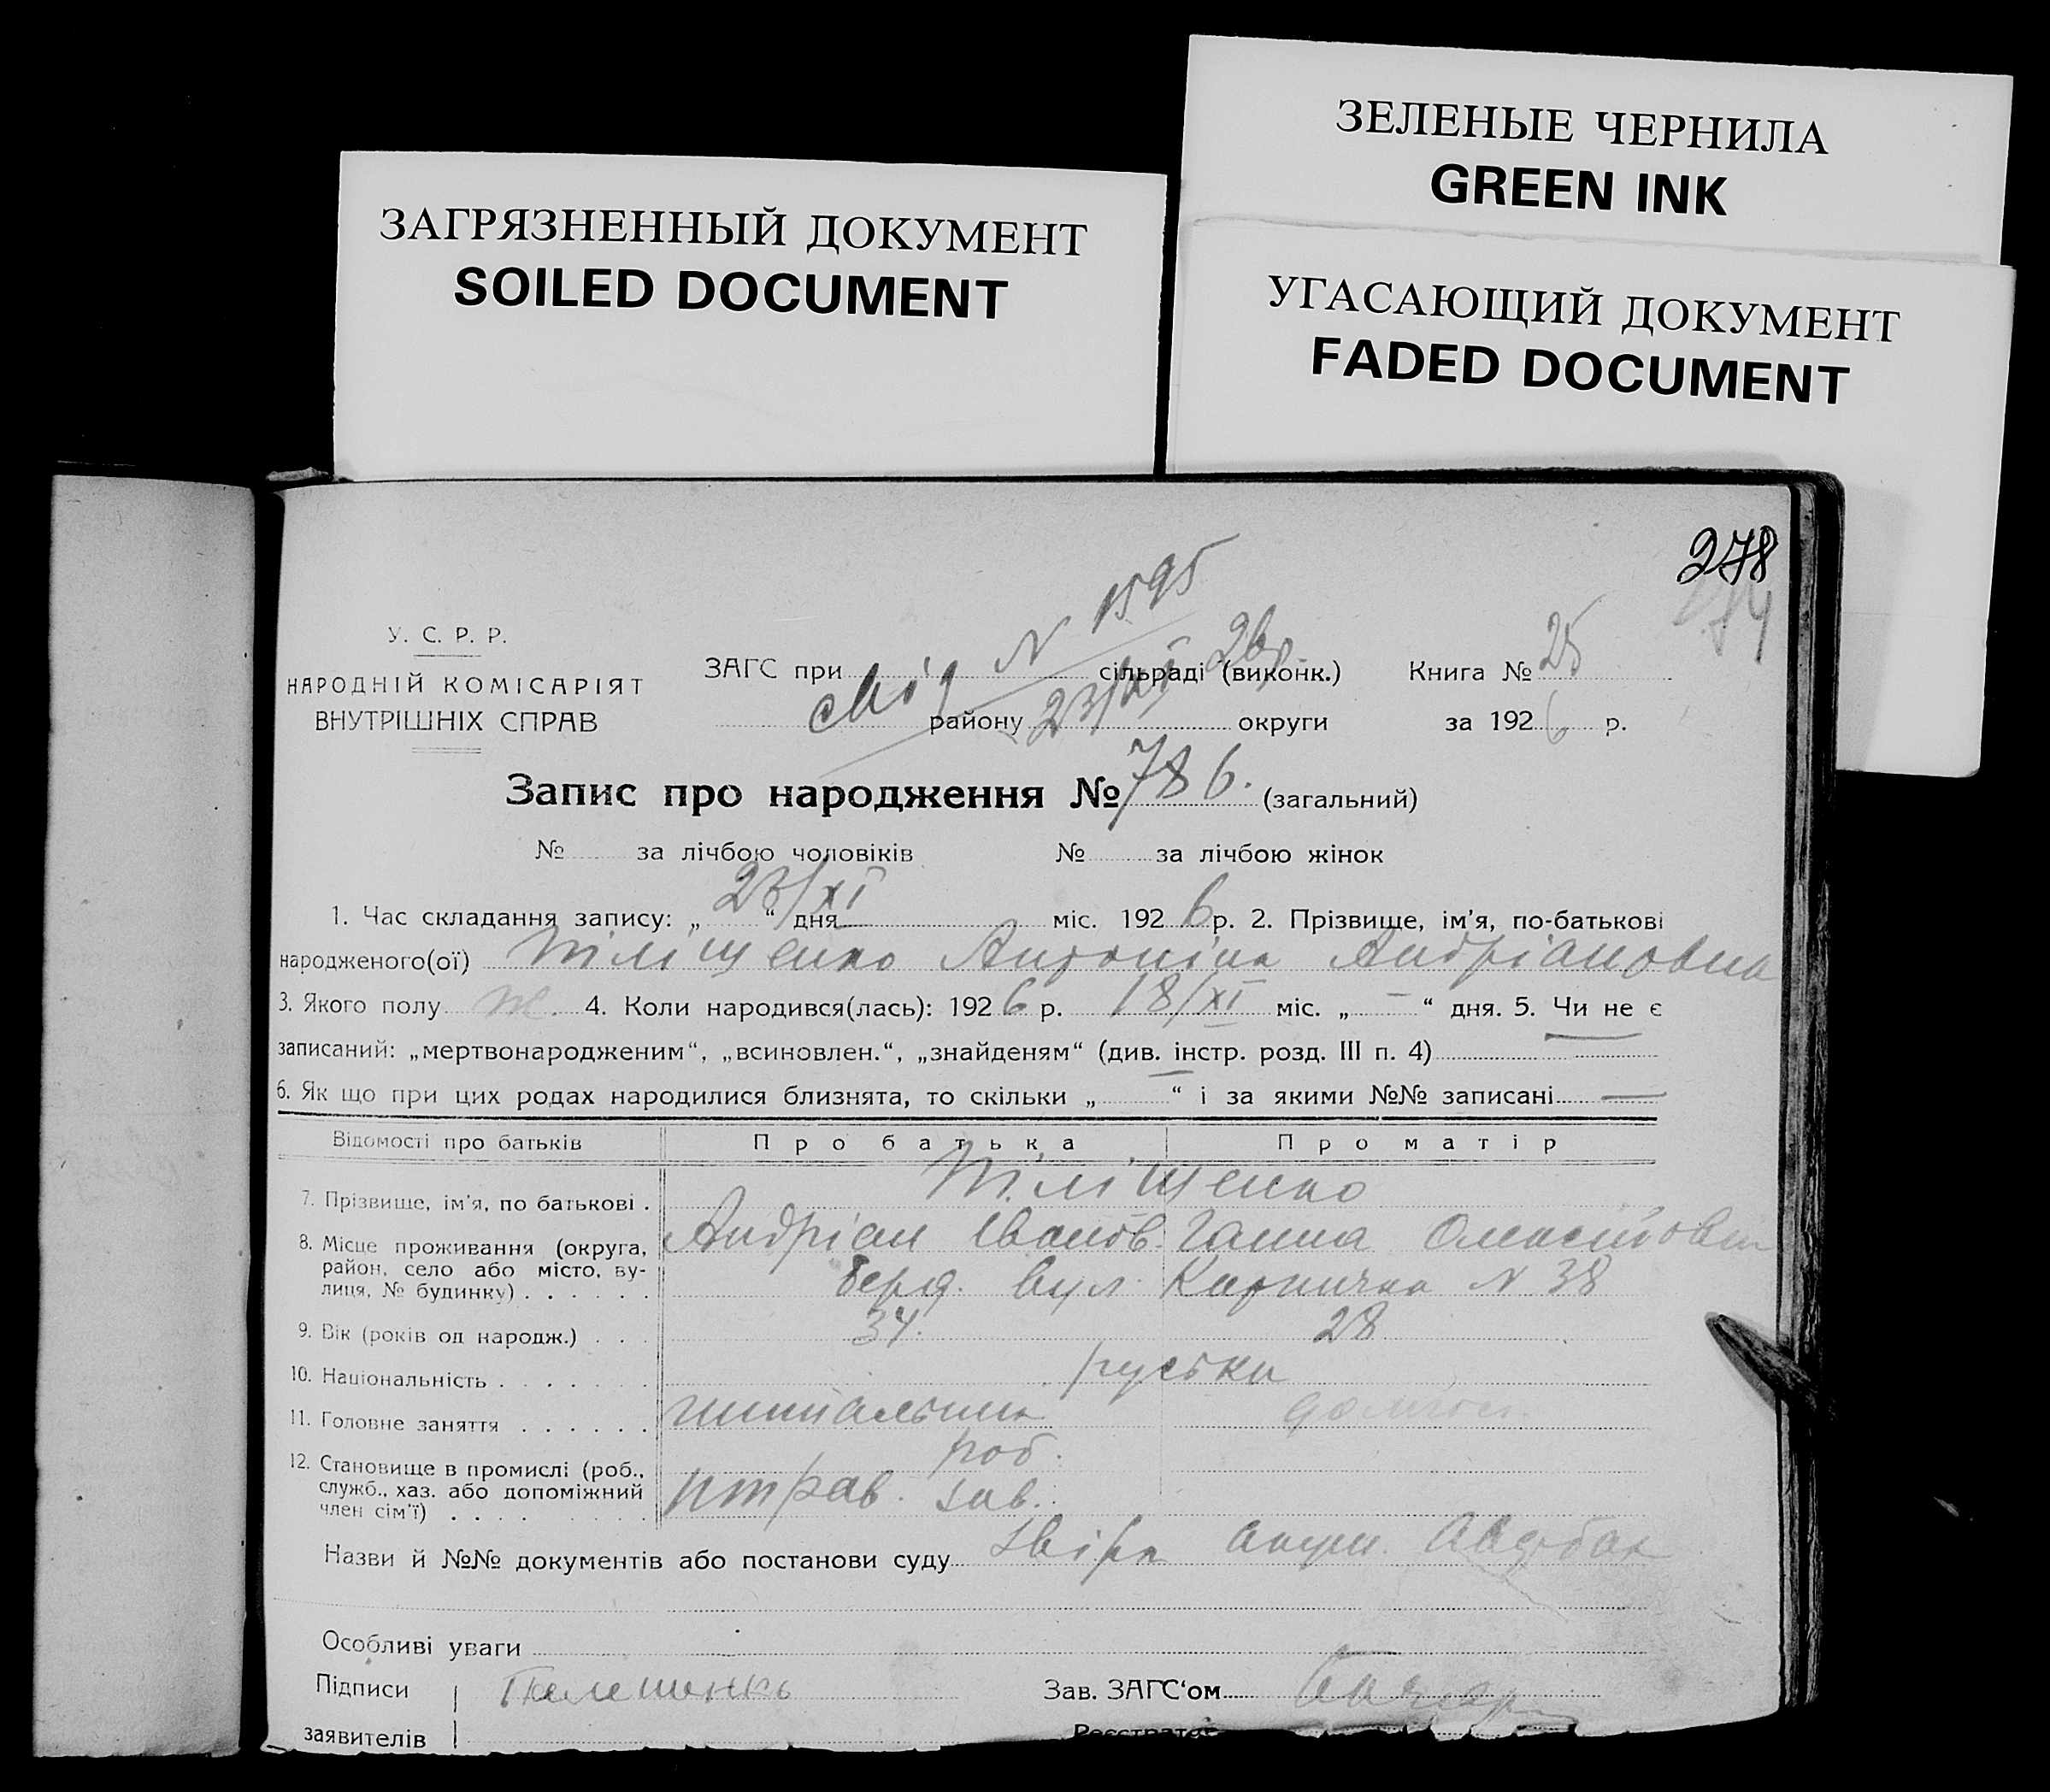 ЗЕЛЕНЫЕ ЧЕРНИЛА
GREEN INK
ЗАГРЯЗНЕННЫЙ ДОКУМЕНТ
SOILED DOCUMENT
УГАСАЮЩИЙ ДОКУМЕНТ
FADED DOCUMENT
278
У. С. Р. Р.
НАРОДНІЙ КОМІСАРІЯТ
ВНУТРІШНІХ СПРАВ
свід N 1595
23/XI 26р.
ЗАГС при сільраді (виконк.) Книга № 25
району округи за 1926 р.
Запис про народження № 786. (загальний)
№ за лічбою чоловіків № за лічбою жінок
1. Час складання запису: „23/XI“ дня міс. 1926 р. 2. Прізвище, ім'я, по-батькові
народженого(ої) Тіліщенко Антоніна Андріановна
3. Якого полу ж. 4. Коли народився(лась): 1926 р. 18/XI міс. „ — “ дня. 5. Чи не є
записаний: „мертвонародженим“, „всиновлен.“, „знайденям“ (див. інстр. розд. III п. 4) —
6. Як що при цих родах народилися близнята, то скільки „ — “ і за якими №№ записані —
Відомості про батьків Про батька Про матір
7. Прізвище, ім'я, по батькові . Тіліщенко
Андріан Іванов. Ганна Олексіїовна
8. Місце проживання (округа, район, село або місто, вулиця, № будинку) . . . . . . Берд. вул. Карпичка N 38
9. Вік (років од народж.) . . . 34. 28
10. Національність . . . . . . . руськи
11. Головне заняття . . . . . .
12. Становище в промислі (роб., служб., хаз. або допоміжний член сім'ї) . . . . роб.
зав.
Назви й №№ документів або постанови суду акуш.
Особливі уваги
Підписи
заявителів
Зав. ЗАГС'ом
Реєстратор